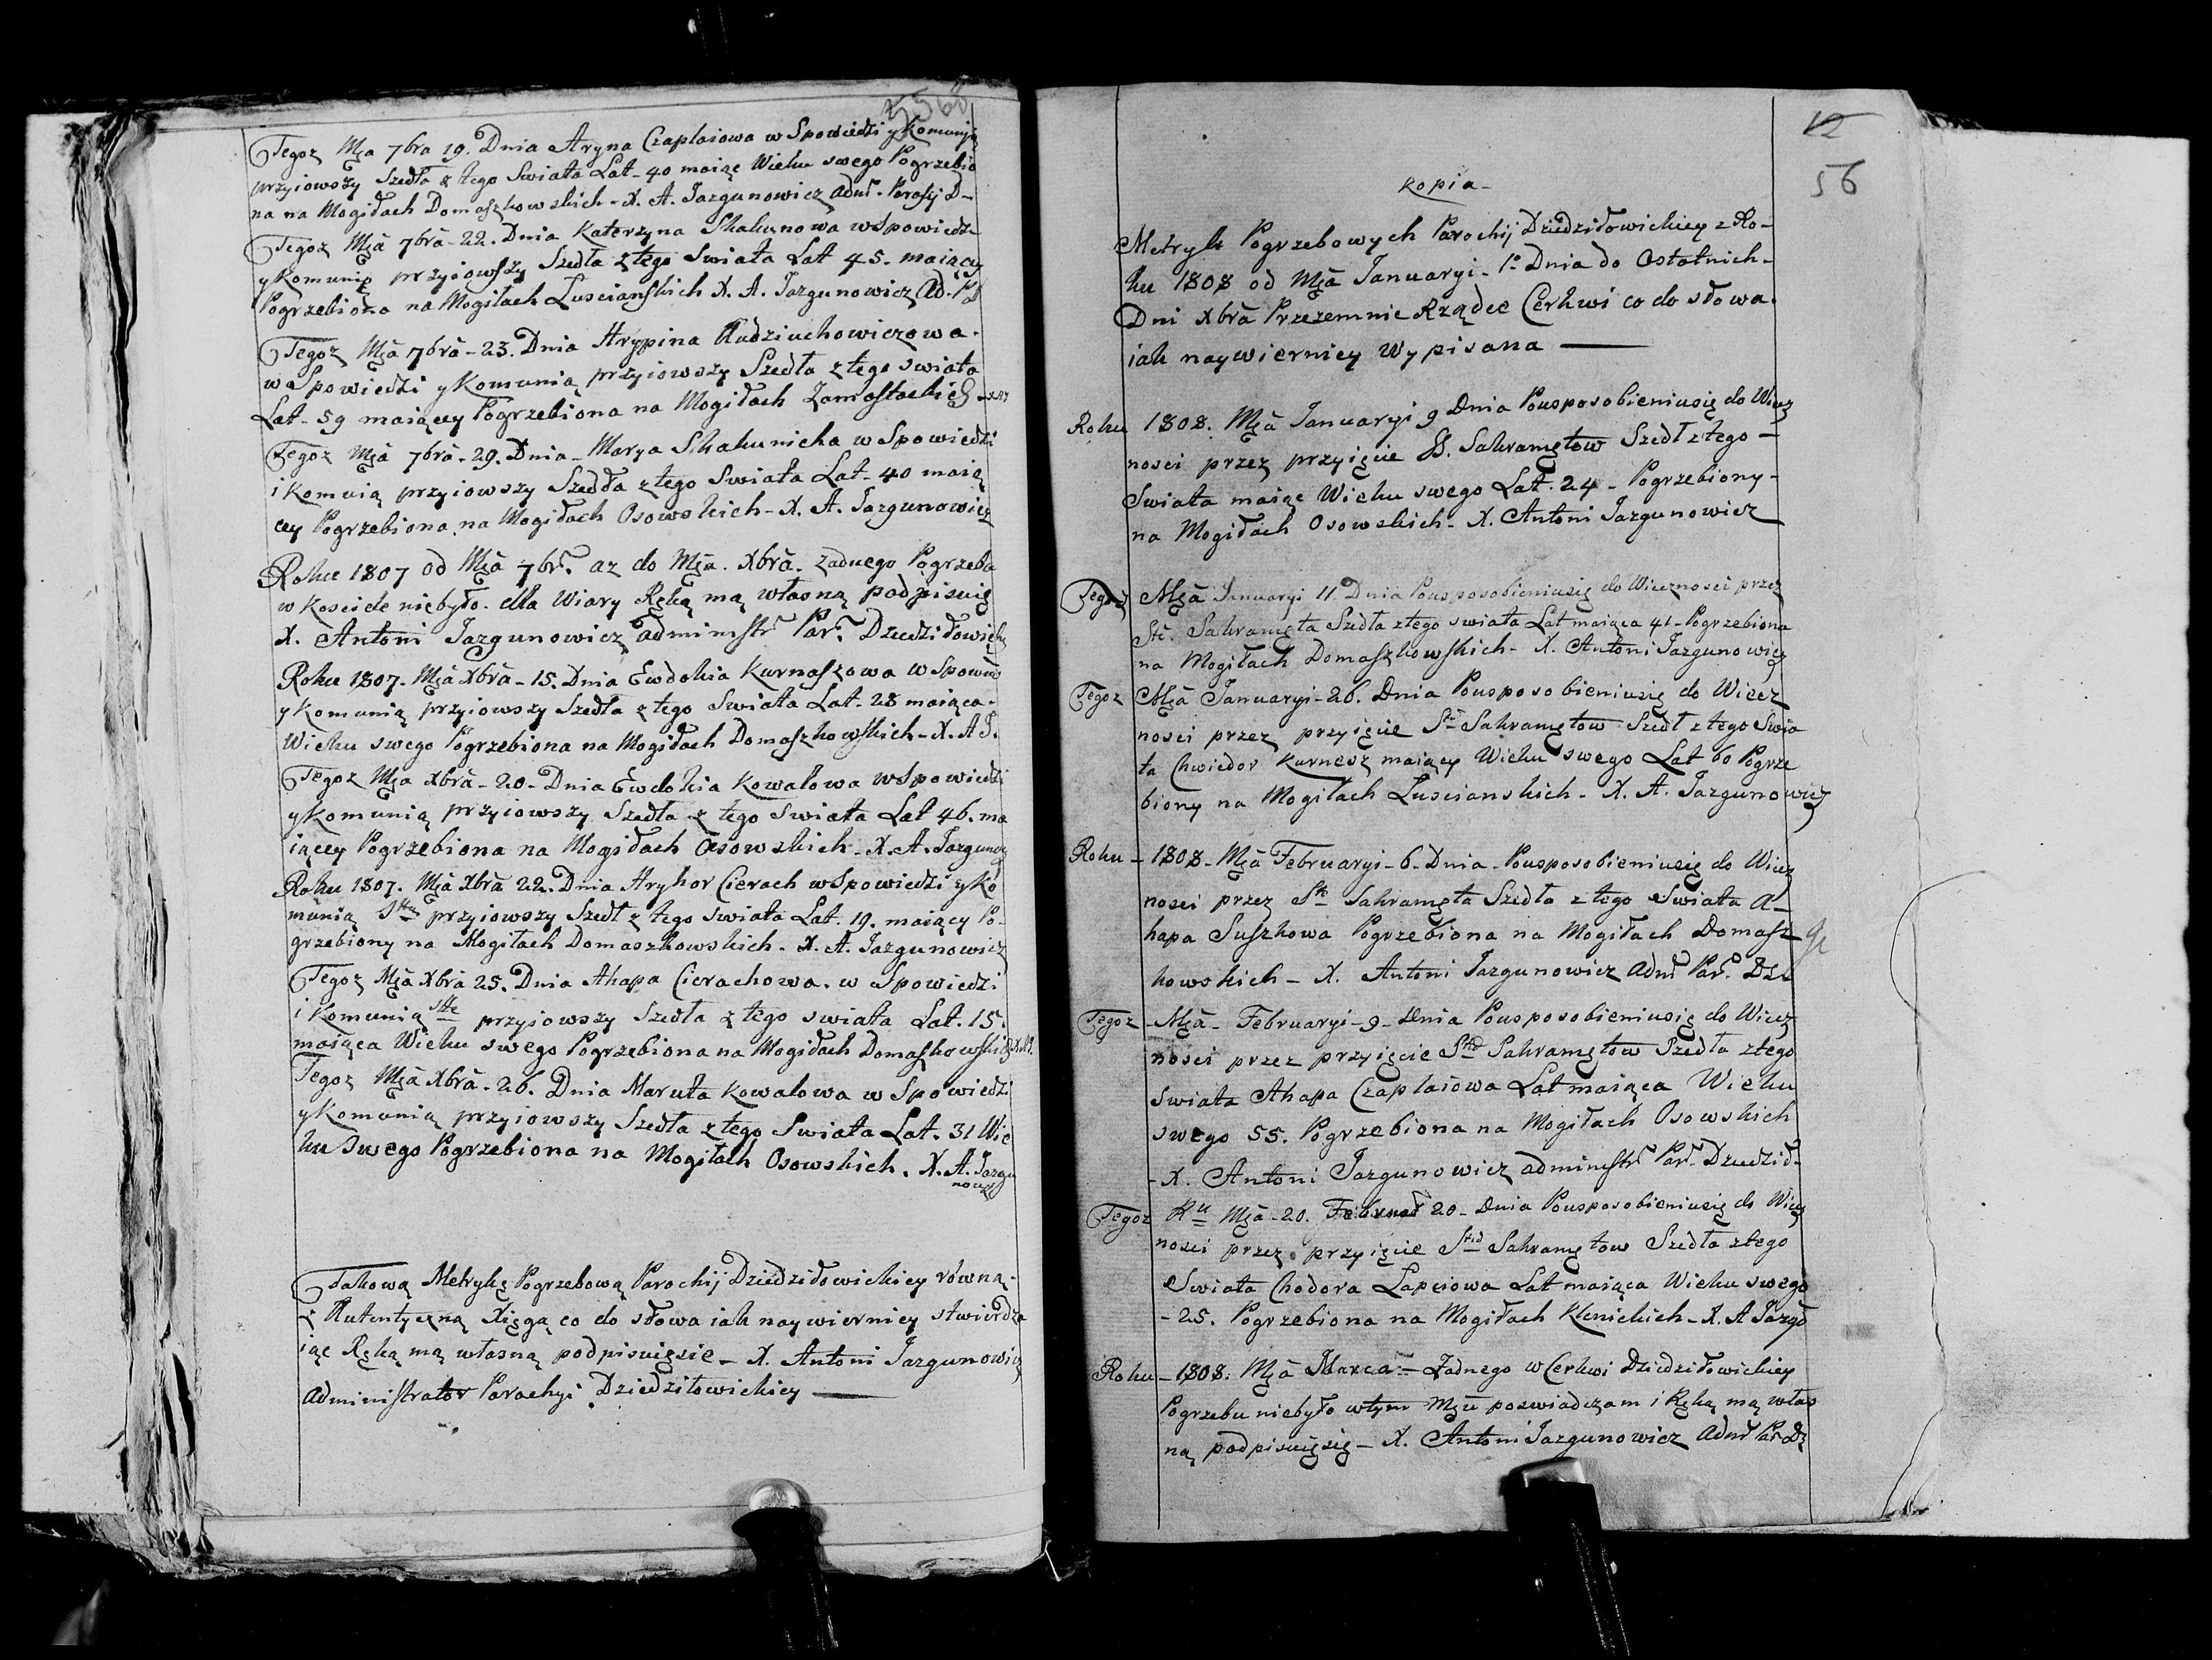 Tegoż Mca 7bra 19. Dnia Aryna Czaplaiowa w Spowiedzi y Komunją
przyiowszy Szedła z tego Swiata Lat 40 maiąc Wieku swego Pogrzebio
na na Mogiłach Domaszkowskich - X. A. Jazgunowicz Adm. Parafij D-
Tegoz Mca 7bra - 22. Dnia Katerzyna Skakunowa w Spowiedz
y Komunię przyiowszy Szedła z tego Swiata Lat 45. maiący
Pogrzebiona na Mogiłach Lusciaskich X. A. Jazgunowicz Ad. Pa
Tegoż Mca 7bra - 23. Dnia Hrypina Audziuchowiczowa
w Spowiedzi y Komunią przyiowszy Szedła z tego swiata
Lat - 59 maiącey Pogrzebiona na Mogiłach Zamostackich
Tegoż Mca 7bra - 29. Dnia - Marya Skakunicha w Spowiedzi
i Komuią przyiowszy Szedła z tego Swiata Lat - 40 maią
cey Pogrzebiona na Mogiłach Osowskich - X. A. Jazgunowicz
Roku 1807 od Mca 7br. az do Mca. Xbra. zadnego Pogrzebu
w Kosciele niebyło. dla Wiary Ręką mą własną podpisuię
X. Antoni Jazgunowicz Administr Par. Dziedziłowicky
Roku 1807. Mca Xbra - 15. Dnia Ewdokia Kurnaszowa w Spowied
y Komunią przyiowszy Szedła z tego Swiata Lat - 28 maiąca -
Wieku swego Pogrzebiona na Mogiłach Domaszkowskich - X. A J.
Tegoz Mca Xbra - 20 - Dnia Ewdokia Kowalowa w Spowiedzi
y Komunią przyiowszy Szedła z tego Swiata Lat 46. ma
iącey Pogrzebiona na Mogiłach Osowskich - X. A. Jazgunowcz
Roku 1807. Mca Xbra 22. Dnia Hryhor Cierach w Spowiedzi y Ko
munią Sttą przyiowszy Szedł z tego Swiata Lat. 19. maiący Po-
grzebiony na Mogiłach Domaszkowskich. X. A. Jazgunowicz
Tegoz Mca Xbra 25. Dnia Ahapa Cierachowa. w Spowiedzi
i Komunią stte przyiowszy Szedła z tego swiata Lat. 15.
maiąca Wieku swego Pogrzebiona na Mogiłach Domaszkowskich
Tegoż Mca Xbra - 26. Dnia Maruta Kowalowa w Spowiedzi
y Komunią przyiowszy Szedła z tego Swiata Lat. 31 Wie
ku Swego Pogrzebiona na Mogiłach Osowskich. X. A. Jazgu
nowicz
Takową Metrykę Pogrzebową Parochij Dziedziłowickiey równą -
z Autentyczną Xięgą co do słowa iak naywierniey stwierdza
iąc Ręką mą własną podpisuięsie - X. Antoni Jazgunowicz
Administrator Parochyi Dziedziłowickiey
12
56
Kopia -
Metryk Pogrzebowych Parochij Dziedziłowickiey z Ro-
ku 1808 od Mca Januaryi - 1º Dnia do Ostatnich -
Dni Xbra Przezemnie Rządce Cerkwi co do słowa.
iak naywierniey Wypisana
Roku 1808. Mca Januaryi 9 Dnia Pousposobieniusię do Wiecz
nosci przez przyięcie SS. Sakramętow Szedł z tego -
Swiata maiąc Wieku swego Lat. 24 - Pogrzebiony -
na Mogiłach Osowskich - X. Antoni Jazgunowicz
Tegoż Mca Januaryi 11 Dnia Pousposobieniusię do Wiecznosci przez
Stt. Sakramęta Szedła z tego swiata Lat maiąca 41 - Pogrzebiona
na Mogiłach Domaszkowskich - X. Antoni Jazgunowicz
Tegoz Mca Januaryi - 26. Dnia Pousposobieniusię do Wiecz
nosci przez przyięcie Stt Sakramętow Szedł z tego Swia
ta Chwiedor Kurnesz maiący Wieku swego Lat 60 Pogrze
biony na Mogiłach Luscianskich - X. A. Jazgunowicz
Roku - 1808 - Mca Februaryi - 6 - Dnia - Pousposobieniusię do Wiecz
nosci przez Stt Sakramęta Szedła z tego Swiata A-
hapa Suszkowa Pogrzebiona na Mogiłach Domasz
kowskich - X. Antoni Jazgunowicz Adm Par. Dzie
Tegoz - Mca - Februaryi - 9 - Dnia Pousposobieniusię do Wiecz
nosci przez przyięcie Sttd Sakramętow Szedła z tego
Swiata Ahapa Czaplaiowa Lat maiąca Wieku
swego 55. Pogrzebiona na Mogiłach Osowskich
- X. Antoni Jazgunowicz administr Par. Dziedził -
Tegoz Ru Mca - 20. Februar 20 - Dnia Pousposobieniusię do Wiecz
nosci przez przyięcie Sttd Sakramętow Szedła z tego
Swiata Chodora Lapciowa Lat maiąca Wieku swego
- 25. Pogrzebiona na Mogiłach Klenickich - X. A Jazgo
Roku - 1808. Mca Marca - Zadnego w Cerkwi Dziedziłowickiey
Pogrzebu niebyło w tym Mcu poswiadczam i Ręką mą włas
ną podpisuięsię - X. Antoni Jazgunowicz Adm Par Dz